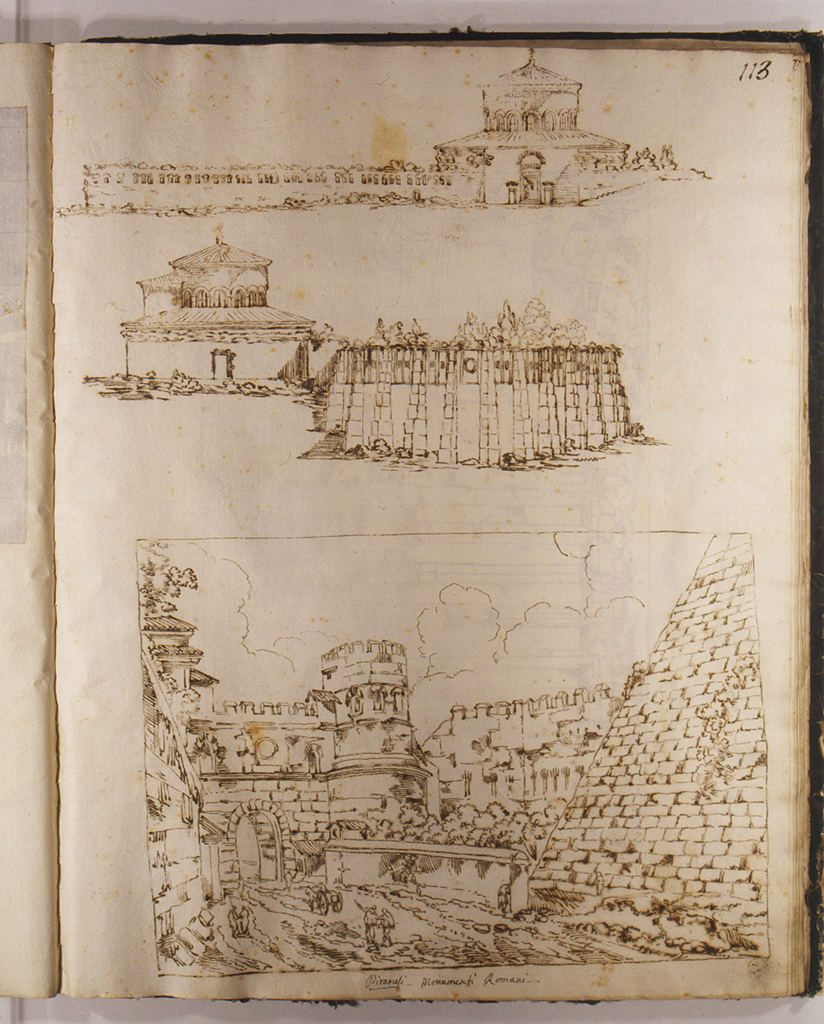 113
Piranesi - Monumenti Romani -